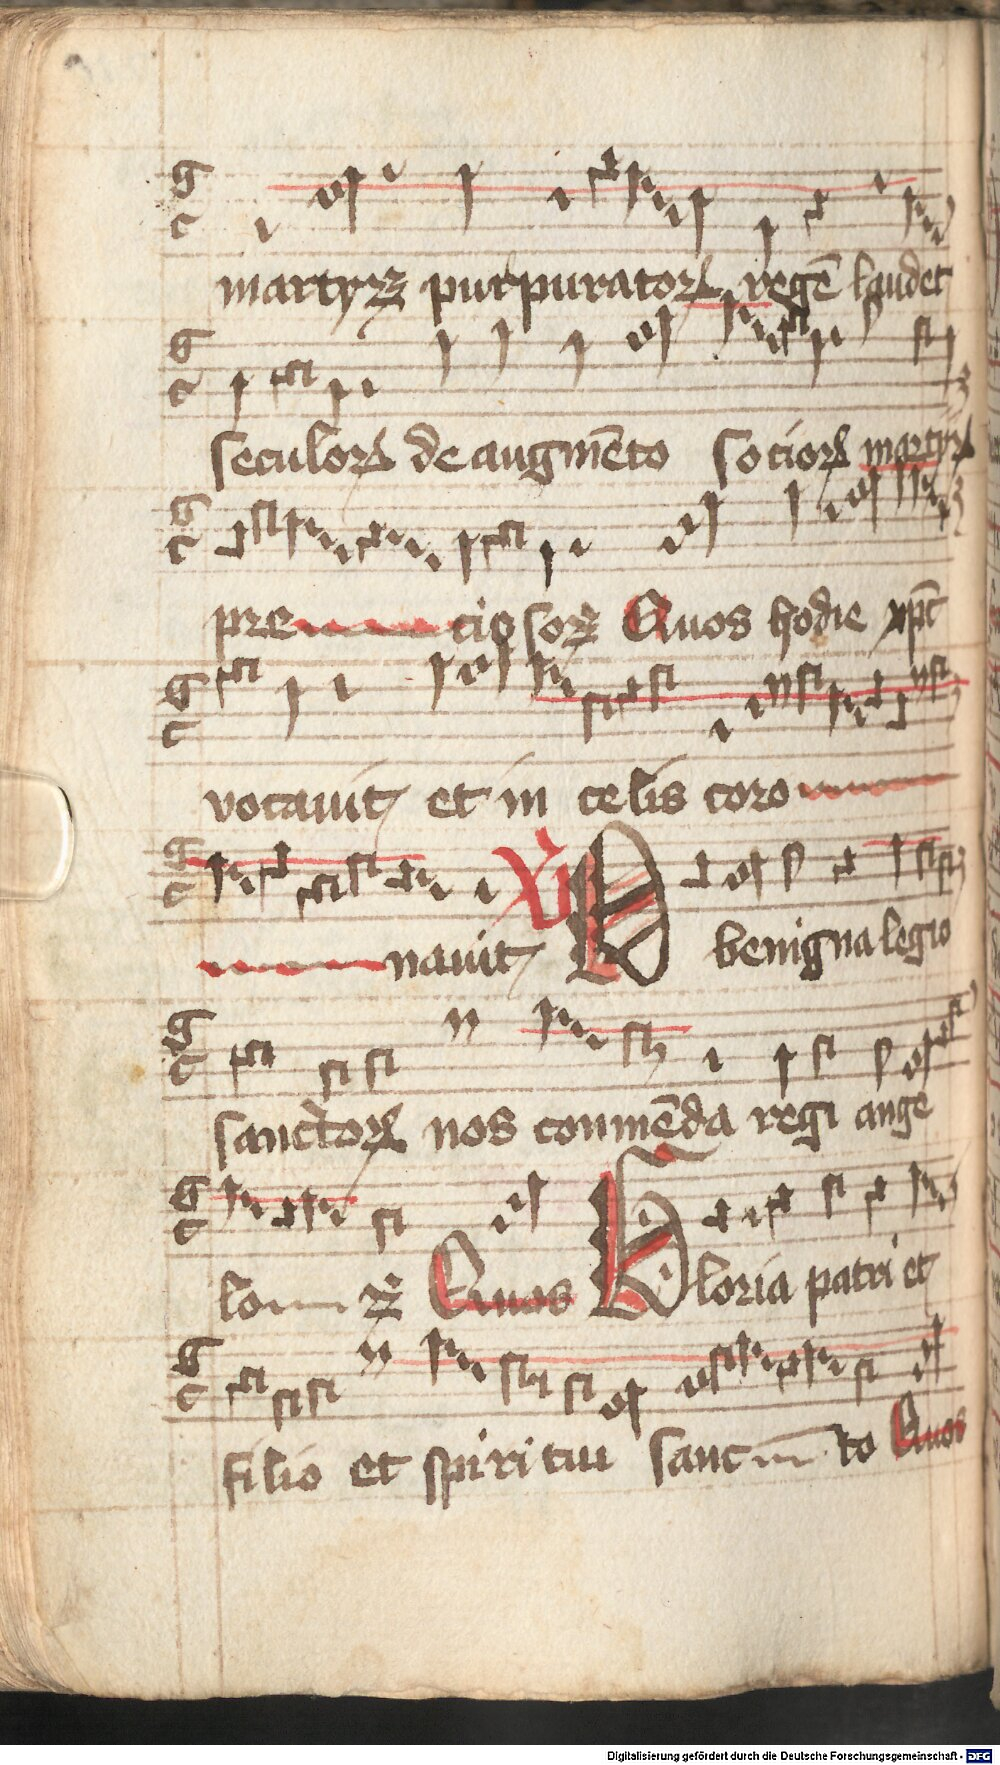 martyrꝝ purpuratorꝝ regē laudet
seculorꝝ de augmēto sociorꝝ martyrꝝ
pre cio sorꝝ Quos hodie xp̄c
vocauit et in celis coro
nauit XI benigna legio
sanctorꝝ nos conmēda regi ange
lo ꝝ Quos Gloria patri et
filio et spiritui sanc to Quos
Digitalisierung gefördert durch die Deutsche Forschungsgemeinschaft - DFG